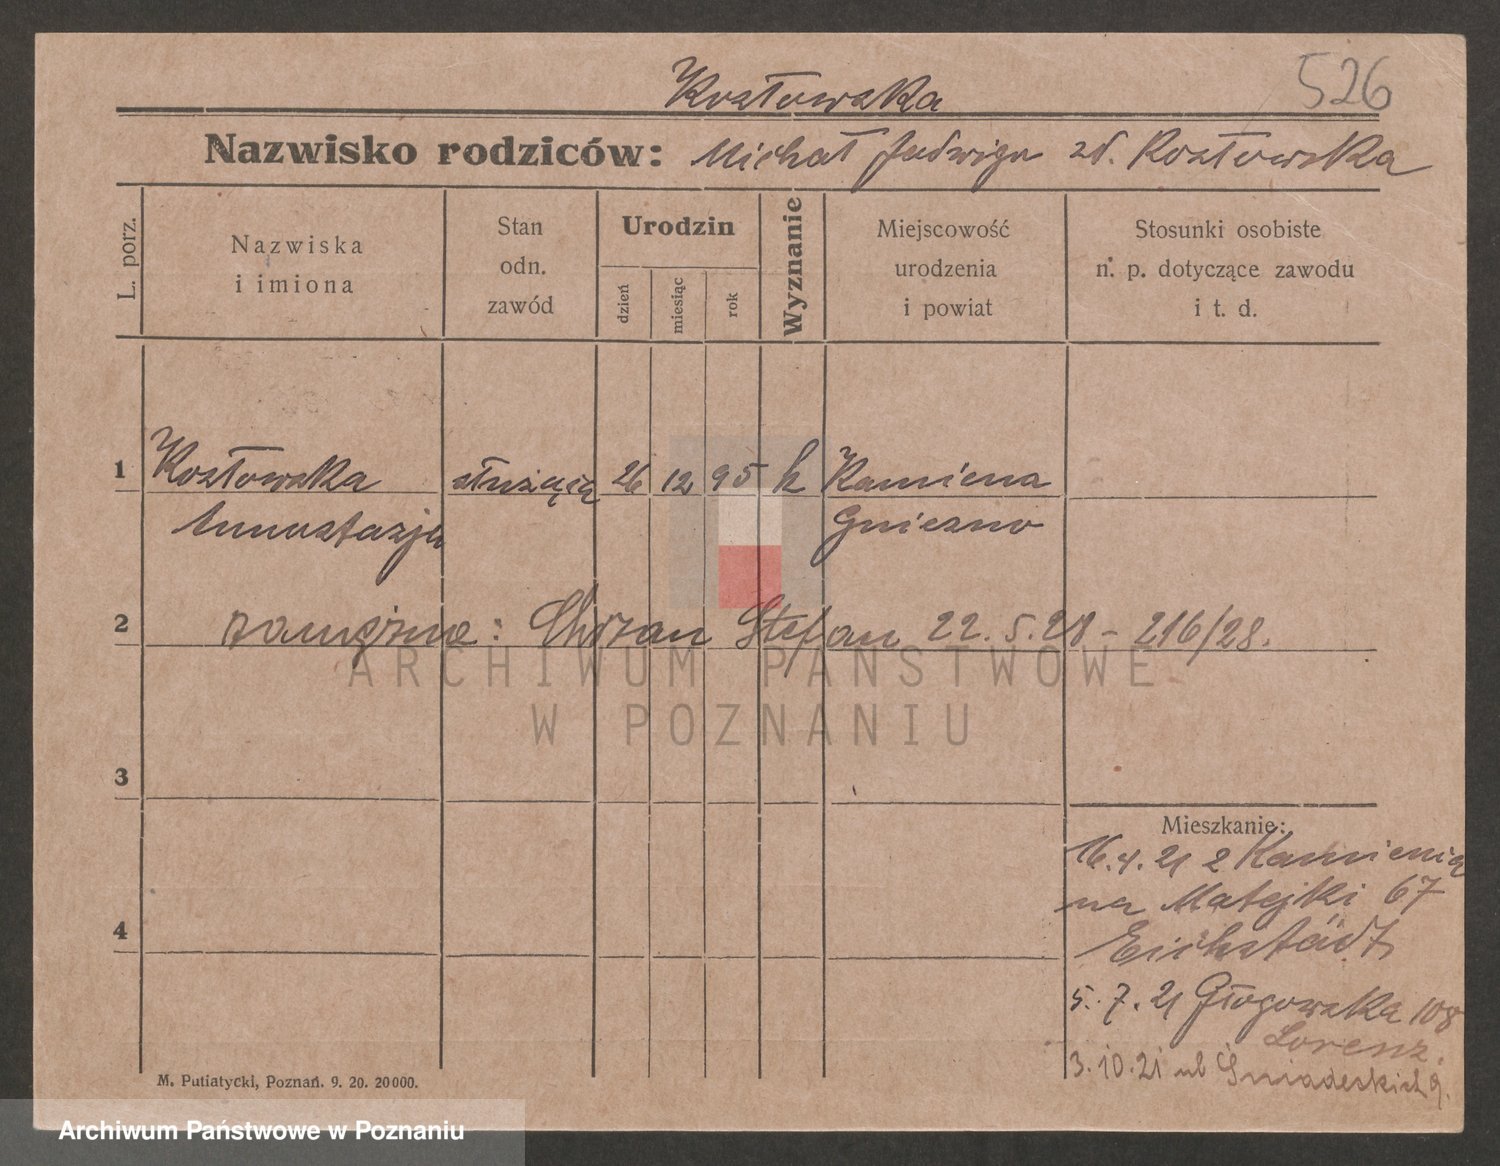 526
Kozłowska
Nazwisko rodziców: Michał Jadwiga zd. Kozłowska
L. porz.
Nazwiska
i imiona
Stan
odn.
zawód
Urodzin
dzień
miesiąc
rok
Wyznanie
Miejscowość
urodzenia
i powiat
Stosunki osobiste
n. p. dotyczące zawodu
i t. d.
1 Kozłowska służącą 26 12 95 k Kamiena
Annastazja Gniezno
2 zamężna: Chrzan Stefan 22.5.28 – 216/28.
ARCHIWUM PAŃSTWOWE
W POZNANIU
3
Mieszkanie:
16.4.21 z Kamienią
na Matejki 67
4
Eichstädt
5.7.21 Głogowska 108
Lorenz.
3.10.21 ul Śniadeskich 9.
M. Putiatycki, Poznań. 9. 20. 20000.
Archiwum Państwowe w Poznaniu